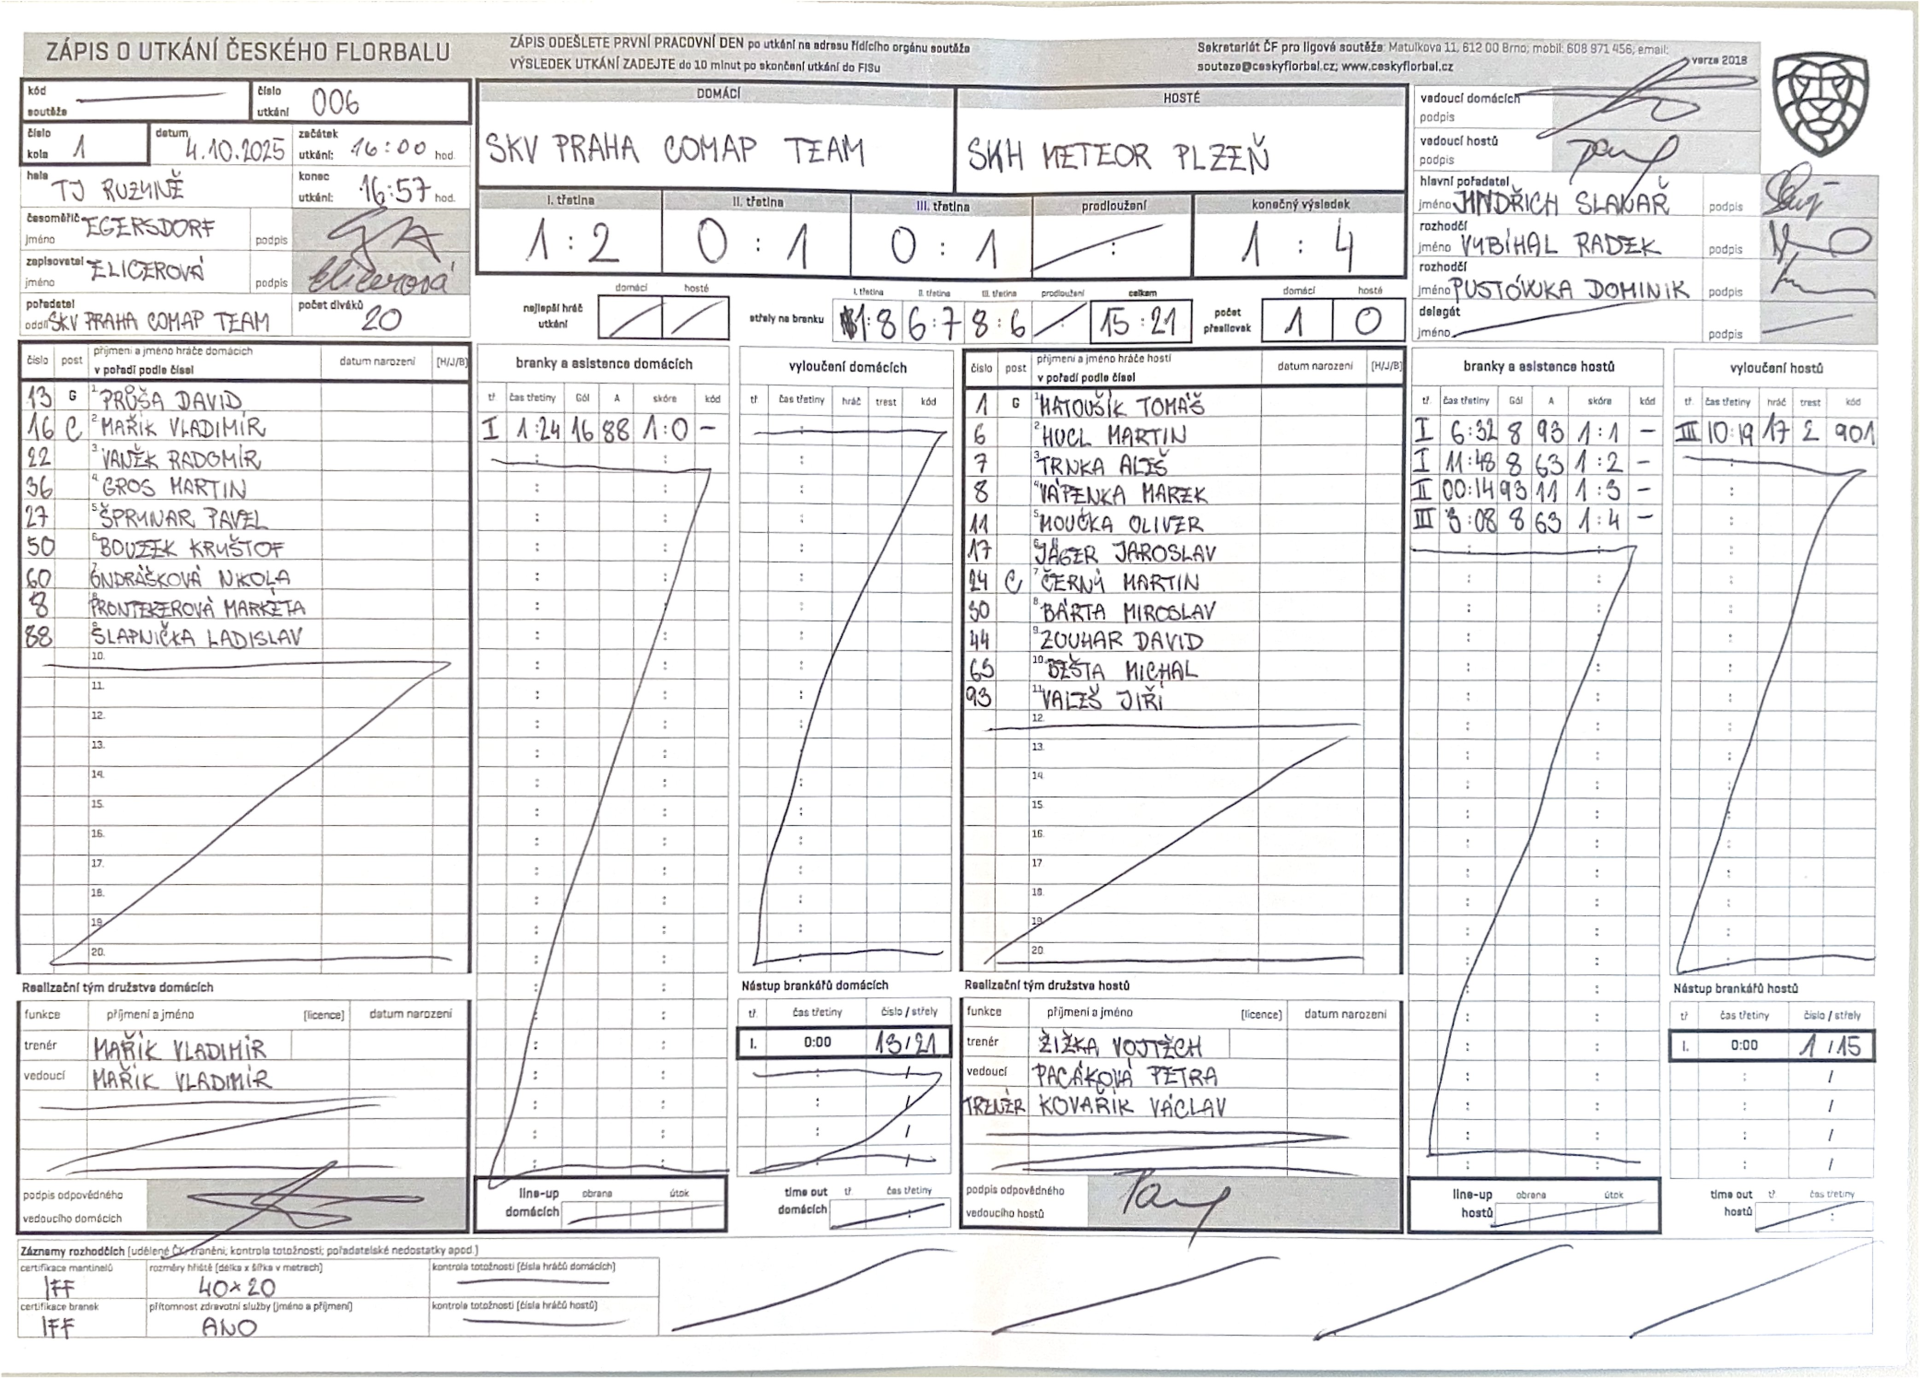 ZÁPIS O UTKÁNÍ ČESKÉHO FLORBALU
ZÁPIS ODEŠLETE PRVNÍ PRACOVNÍ DEN po utkání na adresu řídícího orgánu soutěže
VÝSLEDEK UTKÁNÍ ZADEJTE do 10 minut po skončení utkání do FISu
Sekretariát ČF pro ligové soutěže: Matulkova 11, 612 00 Brno; mobil: 608 971 456, email:
souteze@ceskyflorbal.cz; www.ceskyflorbal.cz
verze 2018
kód soutěže
číslo utkání 006
číslo kola 1
datum 4.10.2025
začátek utkání: 16:00 hod.
hala TJ RUZYNĚ
konec utkání: 16:57 hod.
časoměřič jméno EGERSDORF podpis
zapisovatel jméno ELICEROVÁ podpis Elicerová
pořadatel oddíl SKV PRAHA COMAP TEAM
počet diváků 20
DOMÁCÍ
SKV PRAHA COMAP TEAM
HOSTÉ
SKH METEOR PLZEŇ
I. třetina II. třetina III. třetina prodloužení konečný výsledek
1 : 2 0 : 1 0 : 1 : 1 : 4
nejlepší hráč utkání domácí hosté
střely na branku I. třetina II. třetina III. třetina prodloužení celkem
1:8 6:7 8:6 15:21
počet přesilovek domácí hosté
1 0
vedoucí domácích podpis
vedoucí hostů podpis
hlavní pořadatel jméno JINDŘICH SLANAŘ podpis
rozhodčí jméno VYBÍHAL RADEK podpis
rozhodčí jméno PUSTÓWKA DOMINIK podpis
delegát jméno podpis
číslo post příjmení a jméno hráče domácích v pořadí podle čísel datum narození (H/J/B)
13 G 1. PRŮŠA DAVID
16 C 2. MAŘÍK VLADIMÍR
22 3. VANĚK RADOMÍR
36 4. GROS MARTIN
27 5. ŠPRYNAR PAVEL
50 6. BOUZEK KRYŠTOF
60 7. ONDRÁŠKOVÁ NIKOLA
8 8. FRONTEKEROVÁ MARKÉTA
88 9. ŠLAPNIČKA LADISLAV
10.
11.
12.
13.
14.
15.
16.
17.
18.
19.
20.
branky a asistence domácích
tř. čas třetiny Gól A skóre kód
I 1:24 16 88 1:0 –
vyloučení domácích
tř. čas třetiny hráč trest kód
číslo post příjmení a jméno hráče hostí v pořadí podle čísel datum narození (H/J/B)
1 G 1. MATOUŠÍK TOMÁŠ
6 2. HUCL MARTIN
7 3. TRNKA ALEŠ
8 4. VÁPENKA MAREK
11 5. MOUČKA OLIVER
17 6. JÄGER JAROSLAV
24 C 7. ČERNÝ MARTIN
30 8. BÁRTA MIROSLAV
44 9. ZOUHAR DAVID
63 10. BEŠTA MICHAL
93 11. VALEŠ JIŘÍ
12.
13.
14.
15
16.
17
18.
19.
20
branky a asistence hostů
tř. čas třetiny Gól A skóre kód
I 6:32 8 93 1:1 –
I 11:48 8 63 1:2 –
II 00:14 93 11 1:3 –
III 3:08 8 63 1:4 –
vyloučení hostů
tř. čas třetiny hráč trest kód
III 10:19 17 2 901
Realizační tým družstva domácích
funkce příjmení a jméno (licence) datum narození
trenér MAŘÍK VLADIMÍR
vedoucí MAŘÍK VLADIMÍR
podpis odpovědného vedoucího domácích
line-up domácích obrana útok
Nástup brankářů domácích
tř. čas třetiny číslo / střely
I. 0:00 13/21
time out domácích tř. čas třetiny
Realizační tým družstva hostů
funkce příjmení a jméno (licence) datum narození
trenér ŽIŽKA VOJTĚCH
vedoucí PACÁKOVÁ PETRA
TRENÉR KOVAŘÍK VÁCLAV
podpis odpovědného vedoucího hostů
line-up hostů obrana útok
Nástup brankářů hostů
tř čas třetiny číslo / střely
I. 0:00 1/15
time out hostů tř čas třetiny
Záznamy rozhodčích (udělené ČK, zranění, kontrola totožnosti; pořadatelské nedostatky apod.)
certifikace mantinelů IFF
rozměry hřiště (délka x šířka v metrech) 40×20
kontrola totožnosti (čísla hráčů domácích)
certifikace branek IFF
přítomnost zdravotní služby (jméno a příjmení) ANO
kontrola totožnosti (čísla hráčů hostů)